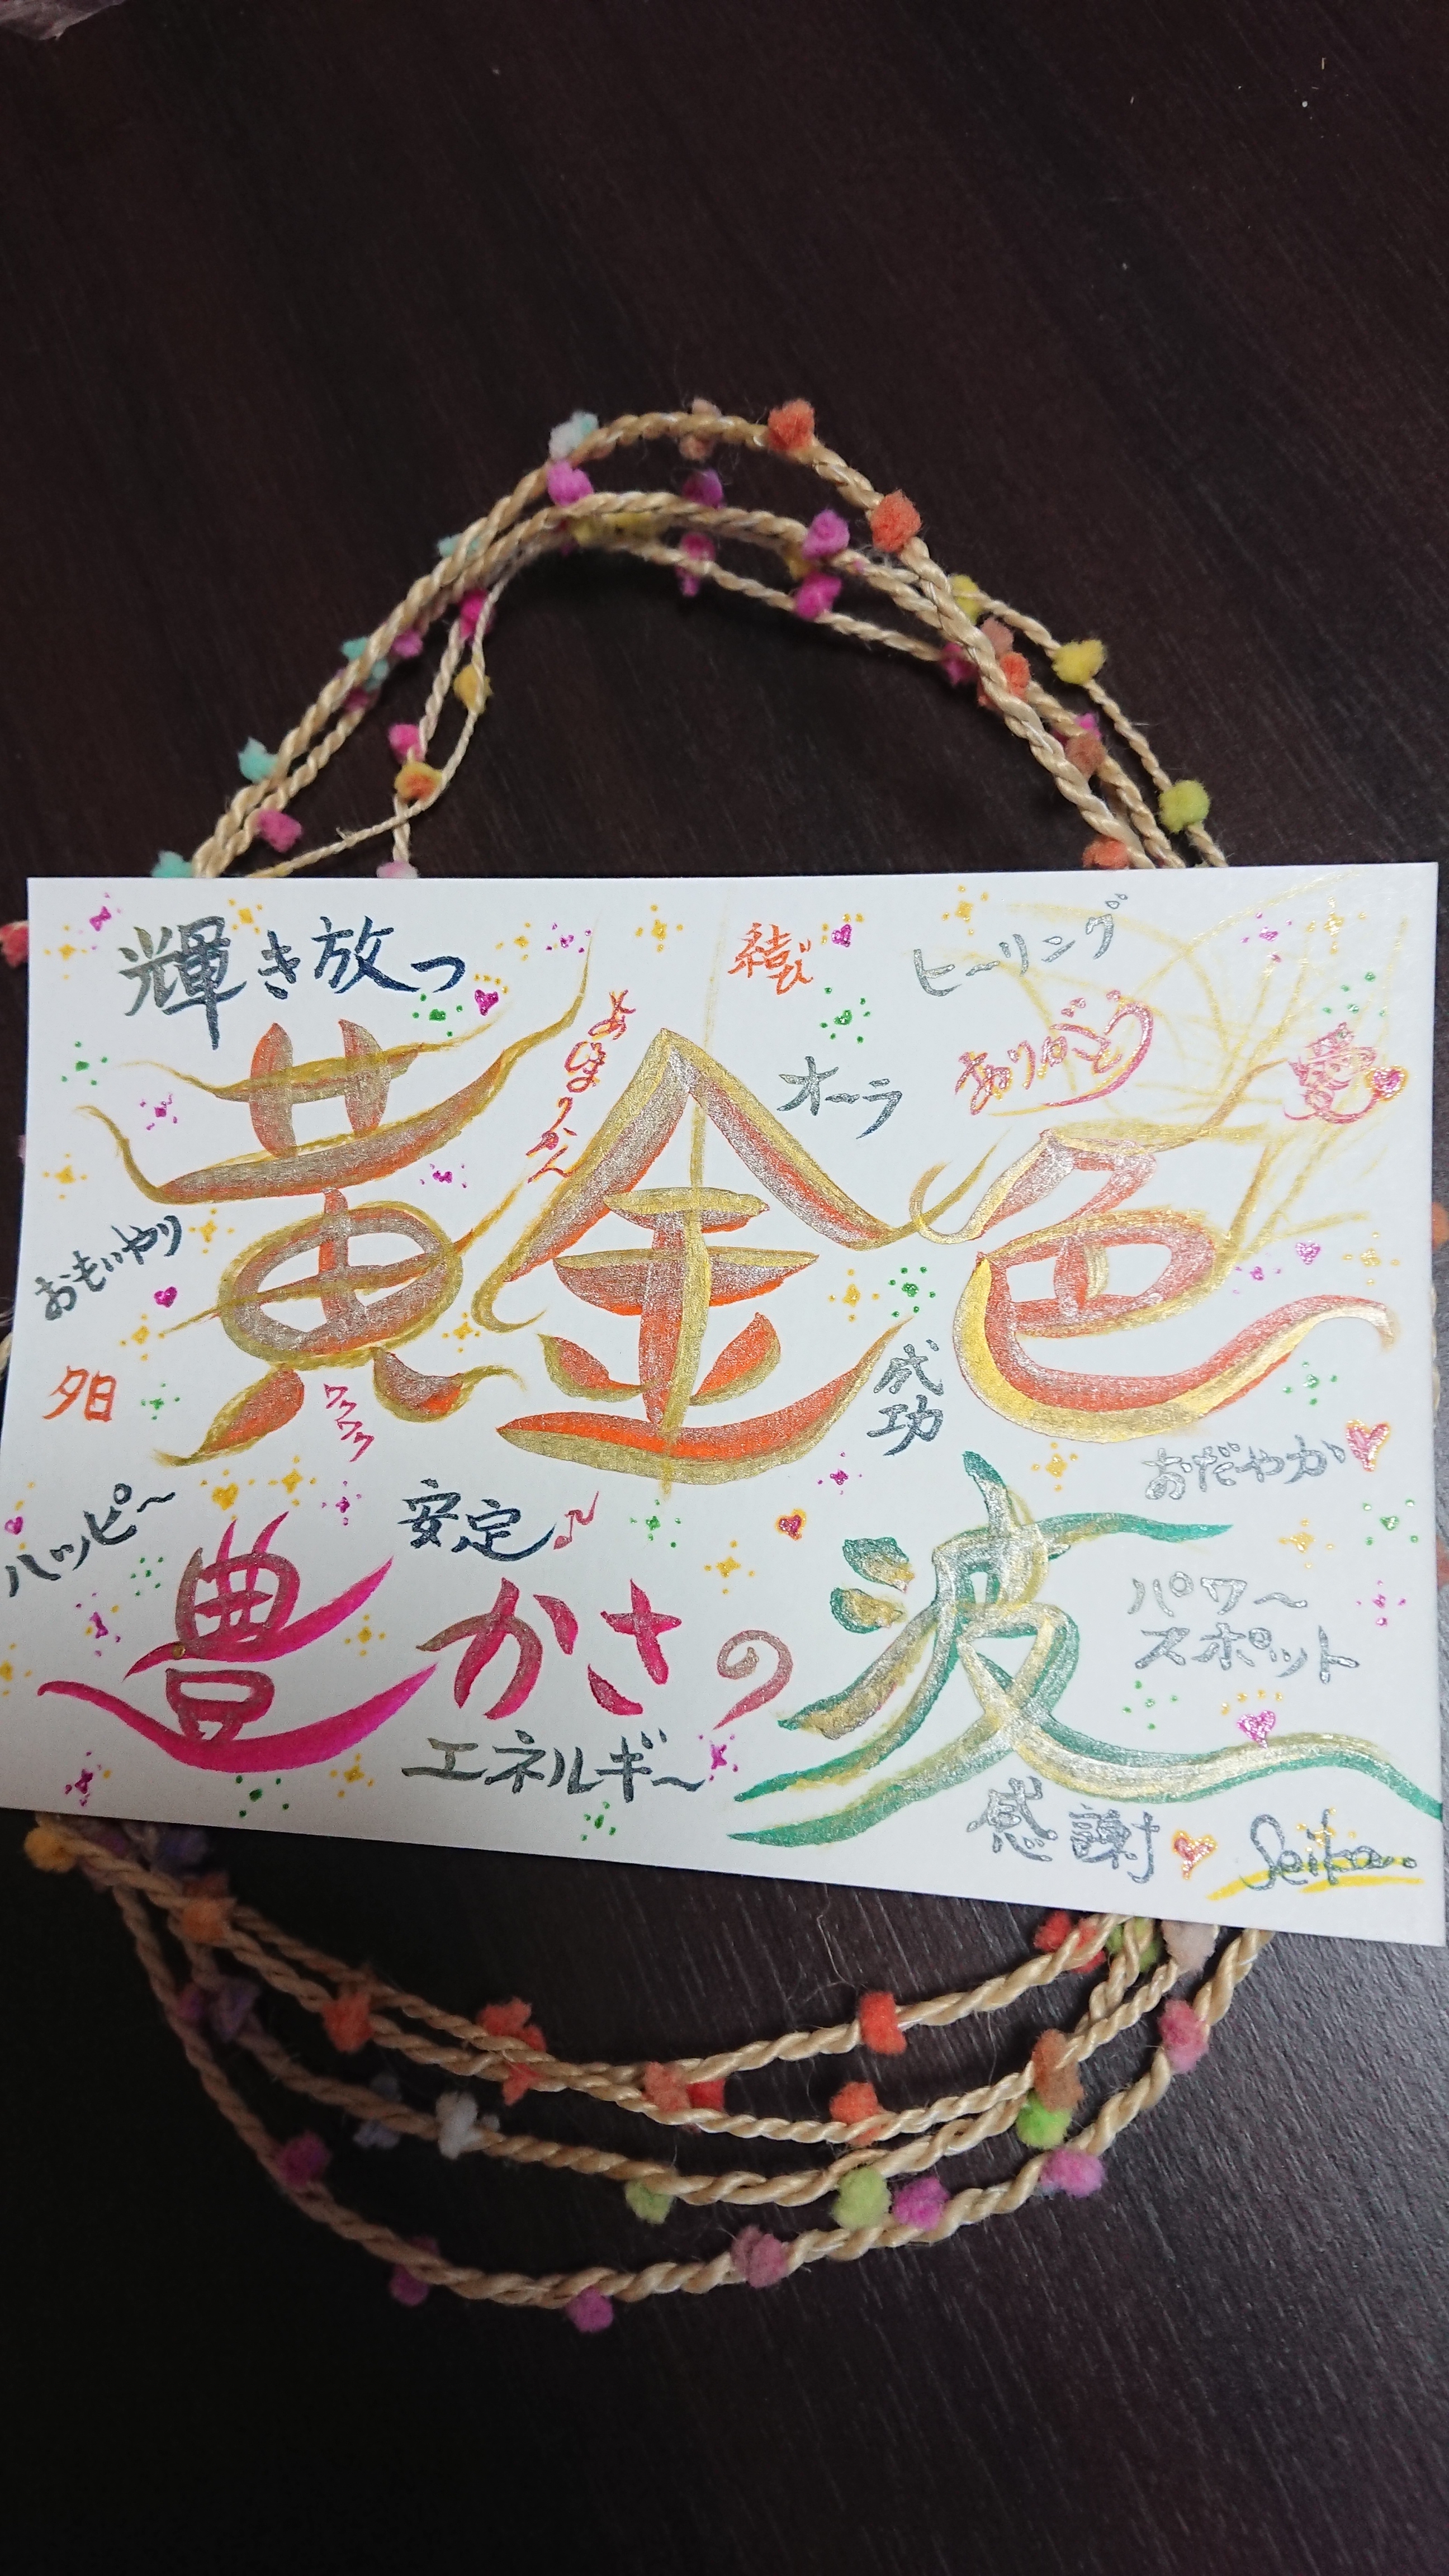 輝き放つ
結び
ヒーリング
よ
オーラ
ありがとう
愛
黄金色
おもいやり
夕日
ワクワク
成功
おだやか
ハッピ〜
安定
豊かさの波
パワ〜
スポット
エネルギ〜
感謝
Seiko.